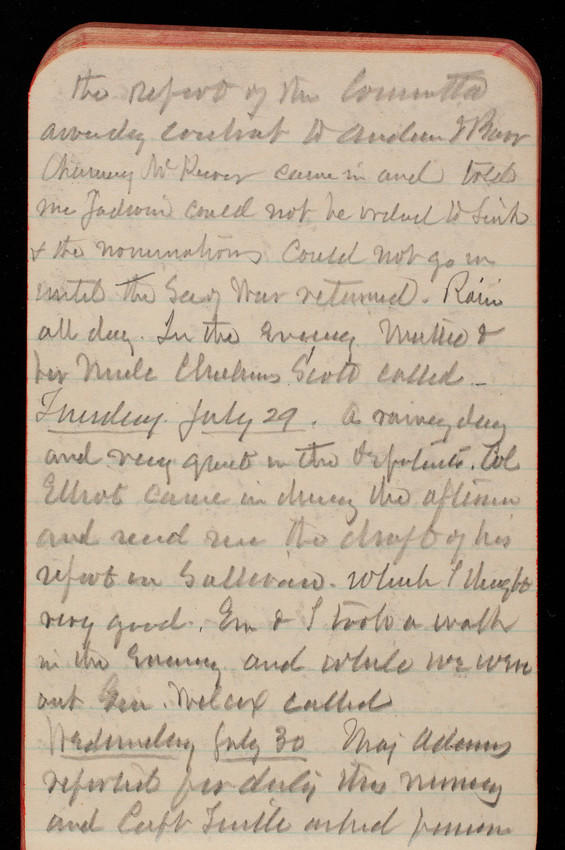 the report of the Committee
awarding contract to Andrew & Barr
came in and told
me Jadwin could not be ordered to
& the nominations could not go in
until the Sec of War returned. Rain
all day. In the evening Mattie &
her Uncle Scott called -
Tuesday July 29. A rainy day
and very quiet in the Col
Elliot came in during the afternoon
and read me the draft of his
report on Sullivan. which I thought
very good. Em & I took a walk
in the evening and while we were
out Gen. Wilcox called
Wednesday July 30 Maj Adams
reported for duty this morning
and Capt Turtle asked